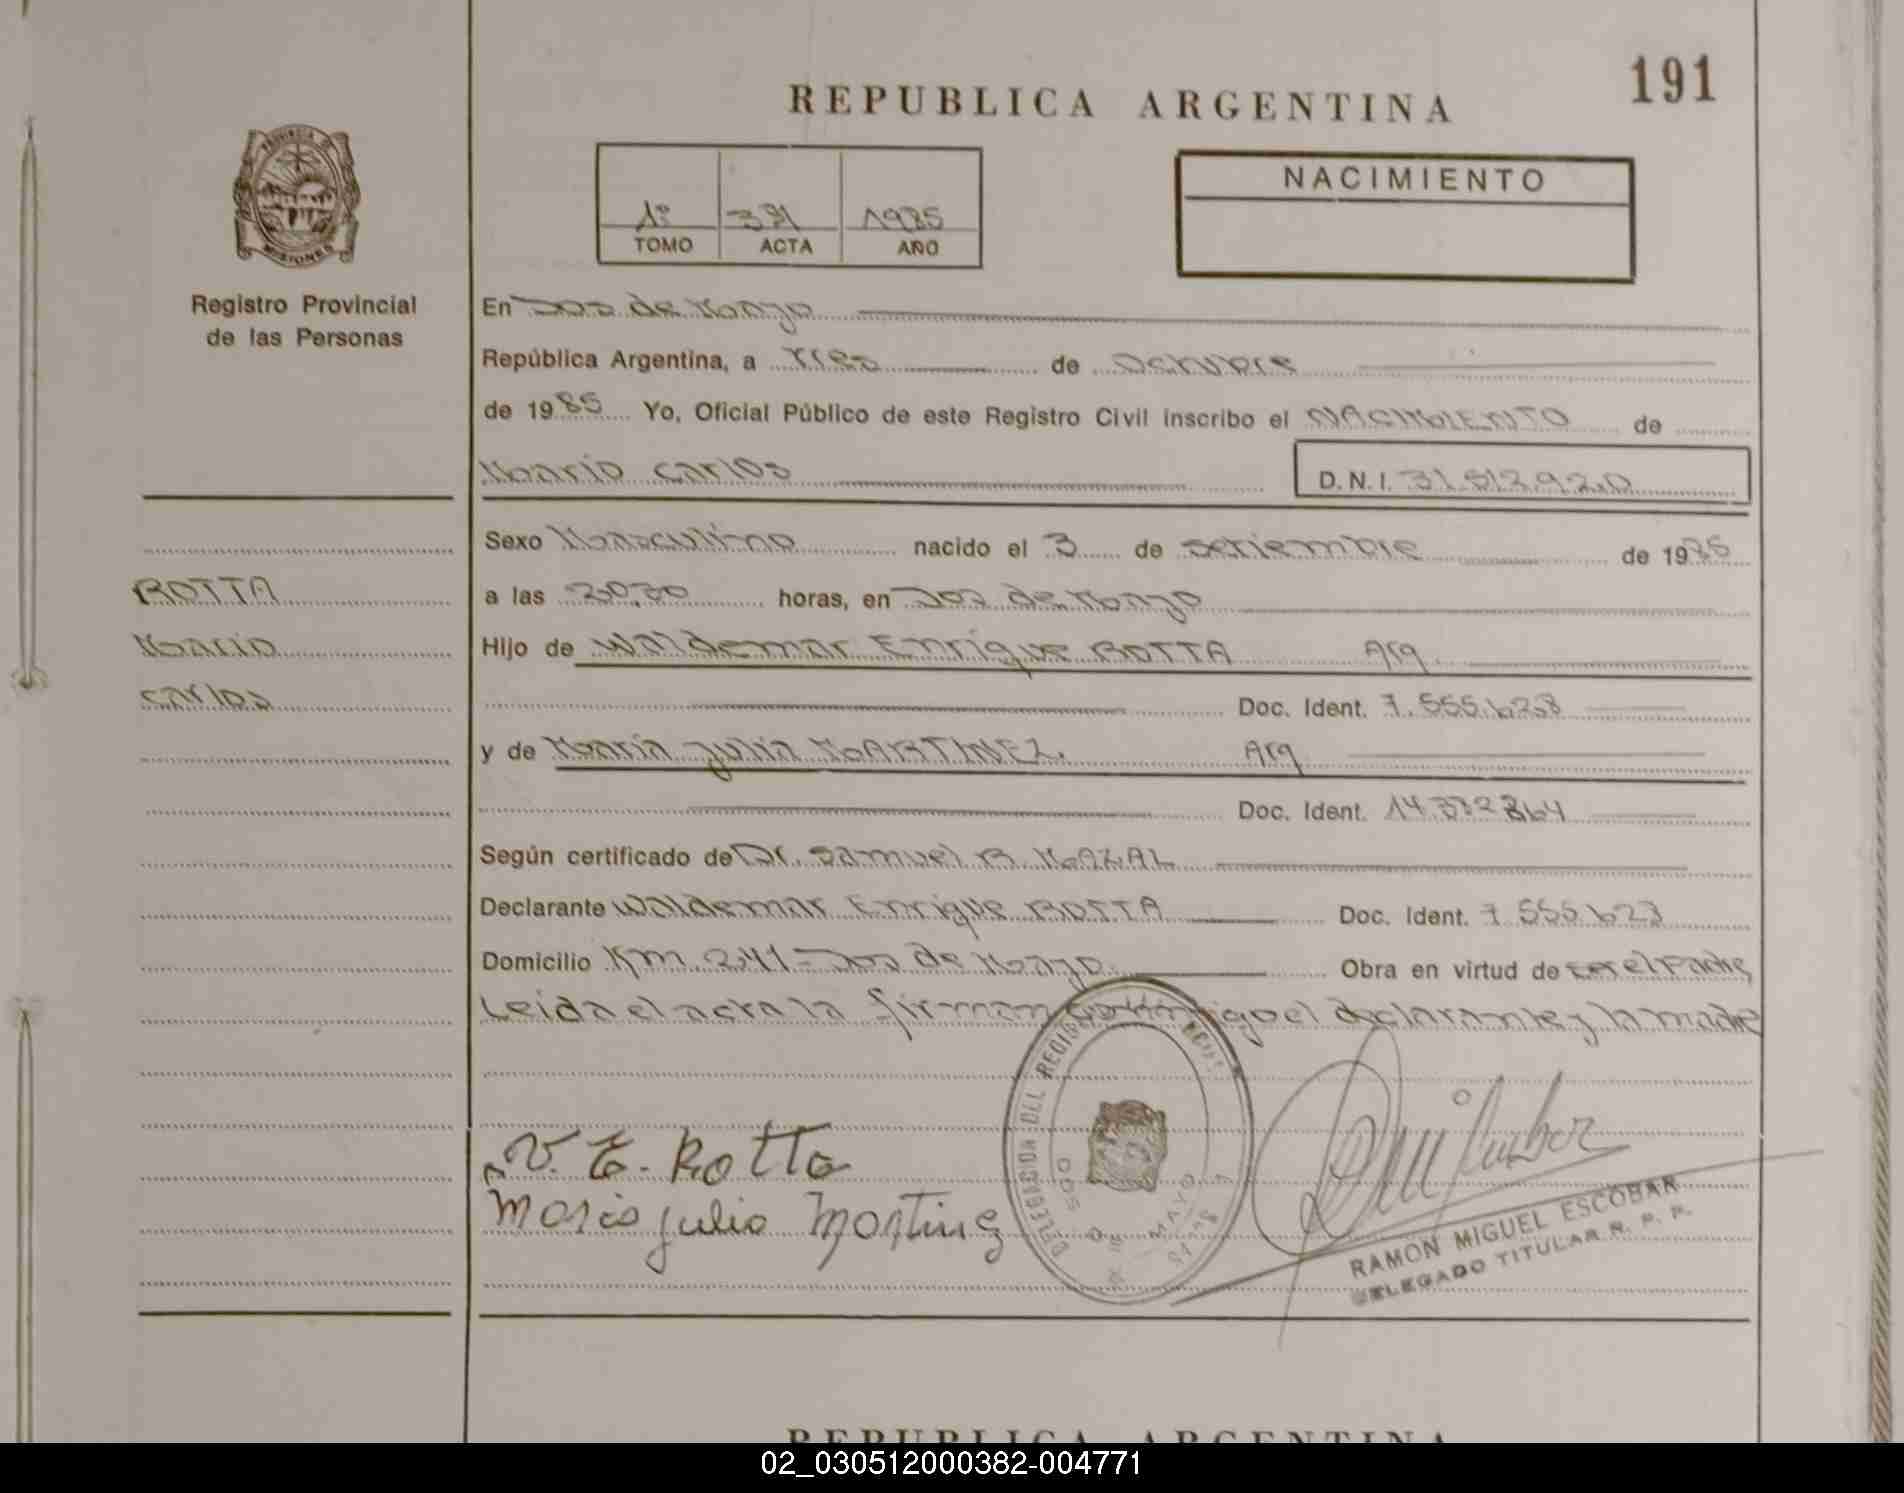 191
REPUBLICA ARGENTINA
PROVINCIA DE
MISIONES
Registro Provincial
de las Personas
NACIMIENTO
1º 1985
TOMO ACTA AÑO
En Dos de Mayo
República Argentina, a Tres de Octubre
de 1985 Yo, Oficial Público de este Registro Civil inscribo el NACIMIENTO de
Mario Carlos D.N.I. 31.512.920
Sexo Masculino nacido el 3 de Setiembre de 1985
ROTTA
Mario
Carlos
a las horas, en Dos de Mayo
Hijo de Waldemar Enrique ROTTA Arg.
Doc. Ident.
y de María Julia MARTINEZ. Arg.
Doc. Ident.
Según certificado de Dr. Samuel R.
Declarante Waldemar Enrique ROTTA Doc. Ident.
Domicilio Km. 241 - Dos de Mayo. Obra en virtud de ser el Padre
Leida el acta la firman conmigo el declarante y la madre
W. E. Rotta
Maria Julia Martinez
DELEGACION DEL REGISTRO
DOS DE MAYO
RAMON MIGUEL ESCOBAR
DELEGADO TITULAR R. P. P.
REPUBLICA ARGENTINA
02_030512000382-004771